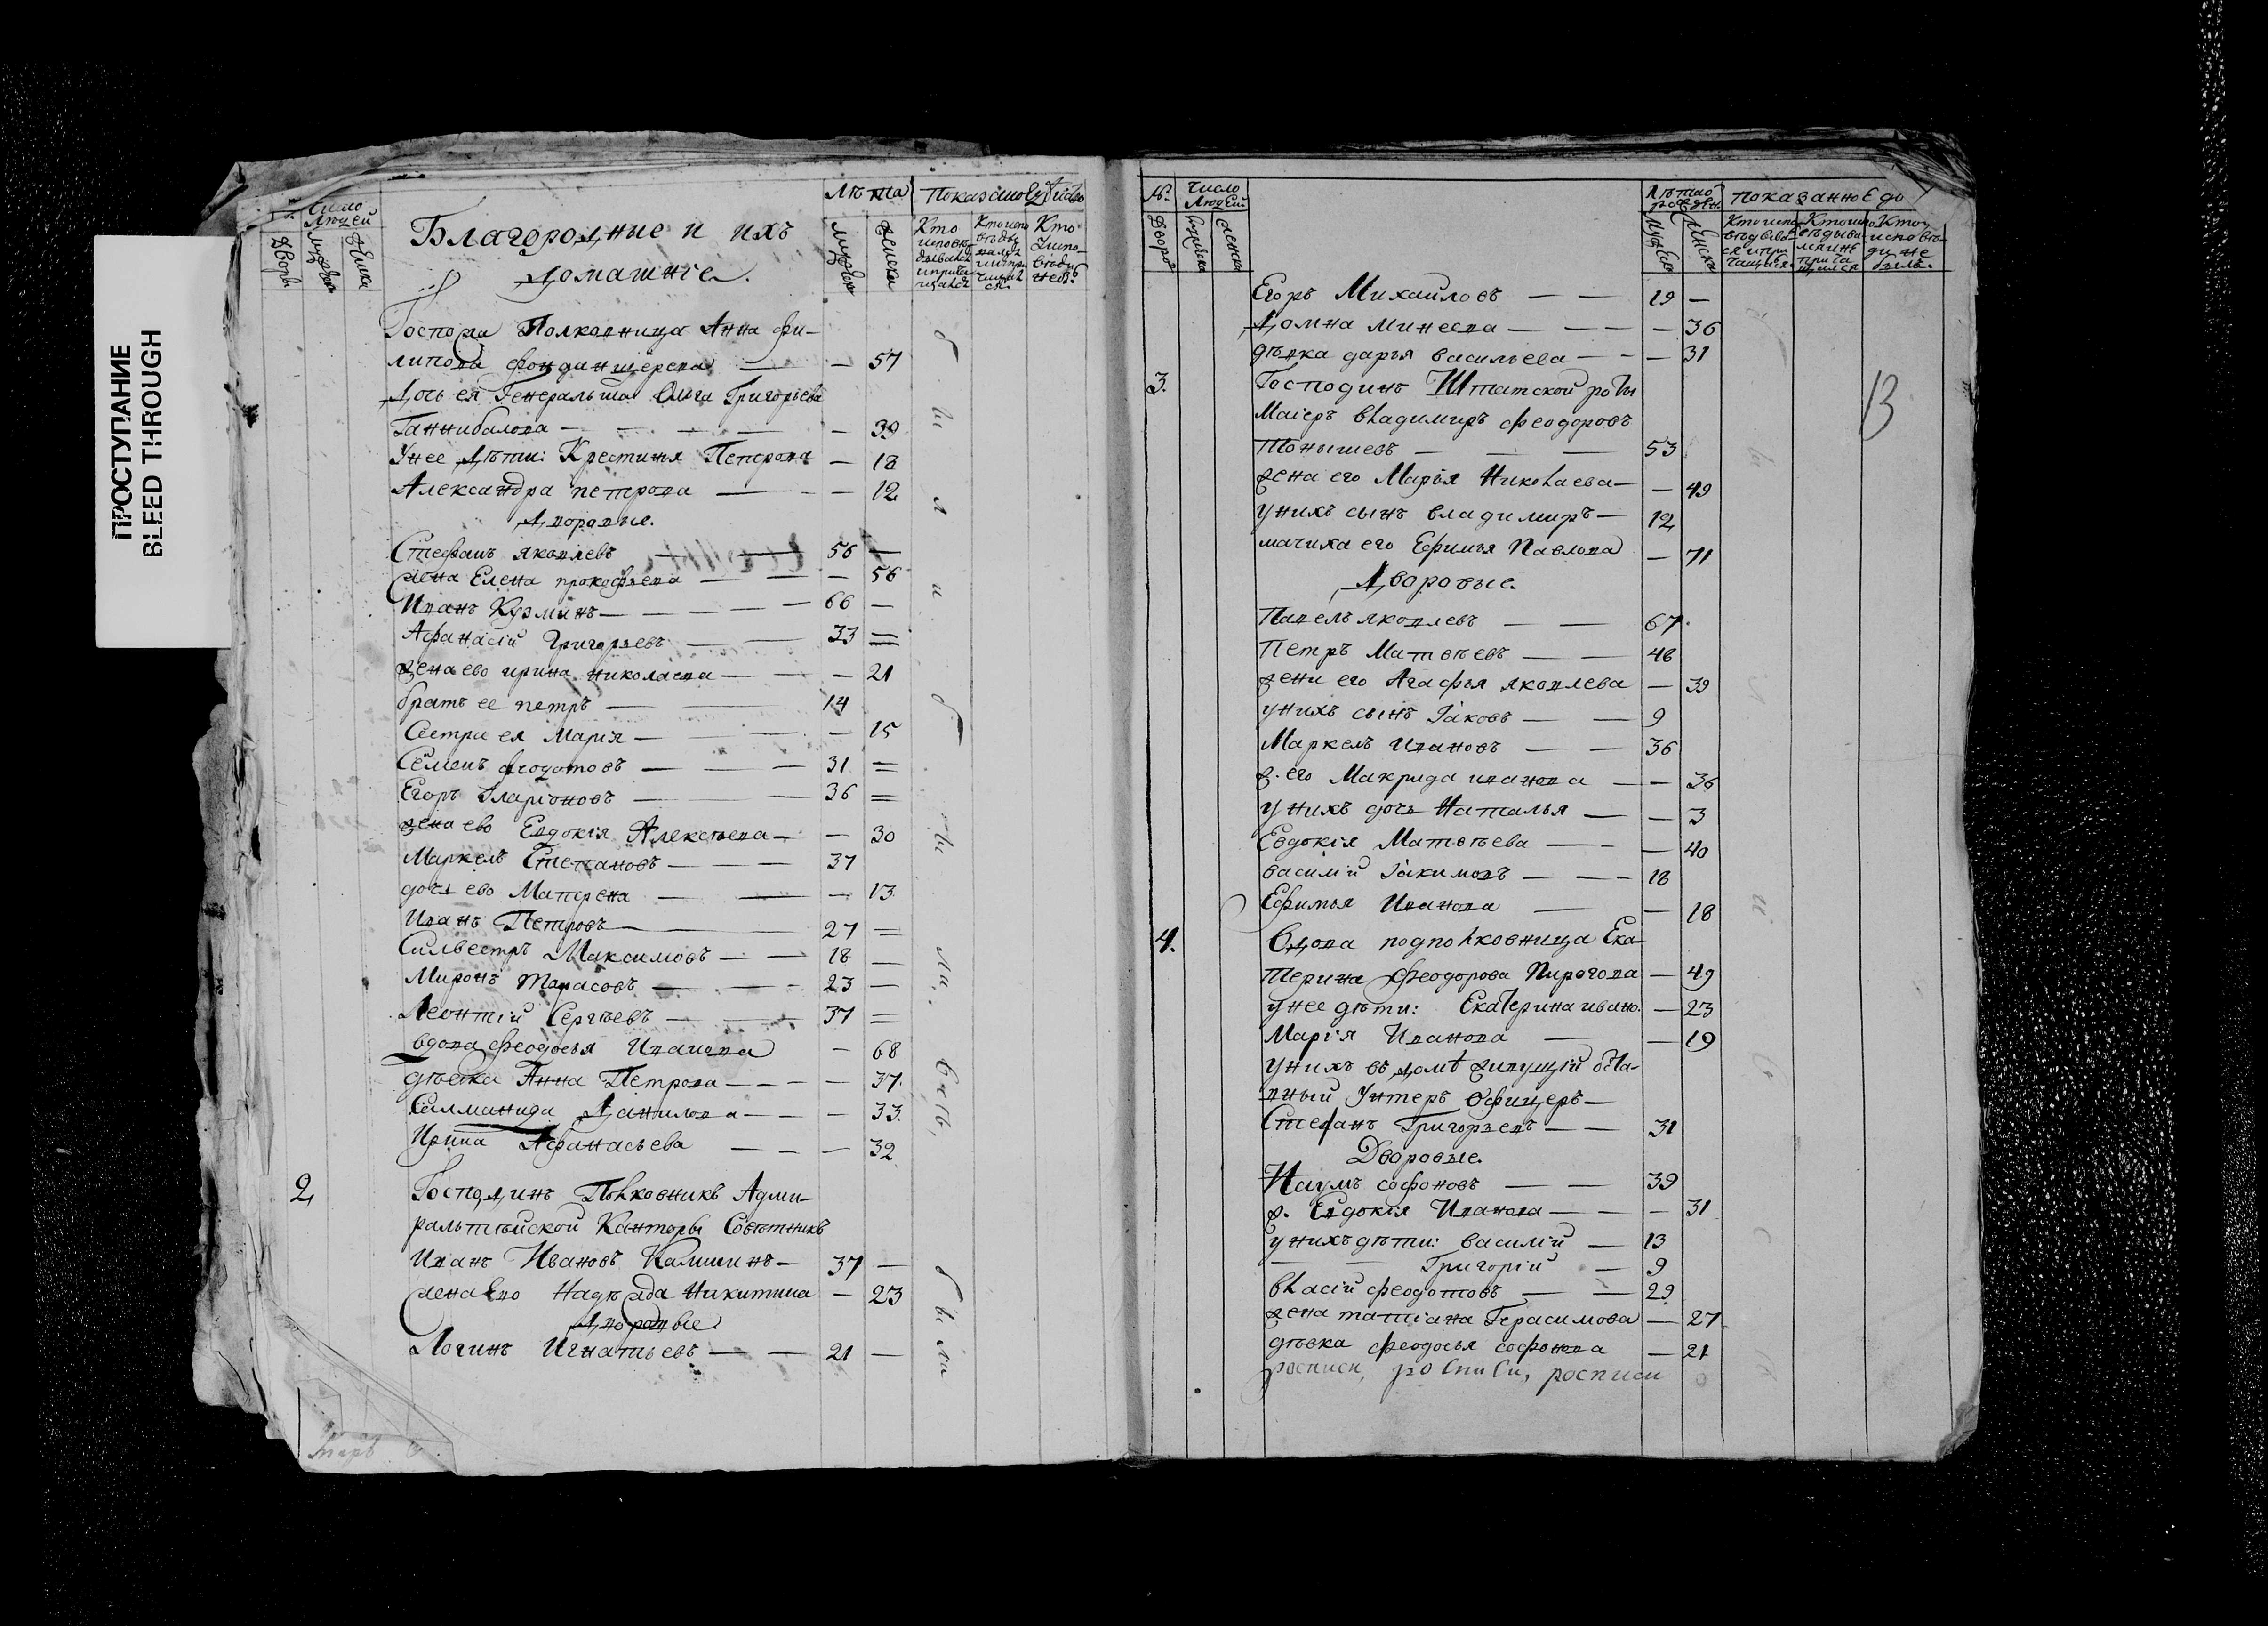 ПРОСТУПАНИЕ
BLEED THROUGH
Число Людей
Дворы
Женска
Благородные и ихъ
домашнiе.
Лѣта
Показанiо
мужеск
женска
Кто исповѣдывался и причащался
Кто
Госпожа Полковница Анна Фи-
липова фонданщерена — — 57
Дочь ея Генеральша Олга Григорьева
Ганнибалова — — 39
У нее дѣти: Крестиня Петрова — 18
Александра петрова — 12
Дворовые.
Стефанъ яковлевъ 56 —
жена Елена прокофьева — 56
Иванъ Кузминъ — 66 —
Афанасiй Григорьевъ — 33 =
жена ево ирина николаева — 21
братъ ее петръ — 14
Сестра ея Марiя — 15
Семенъ феодотовъ — 31 =
Егоръ Iларiоновъ — 36 =
жена ево Евдокiя Алексѣева — 30
Маркелъ Степановъ — 37
дочь ево Матрена — 13
Иванъ Петровъ — 27 =
Силвестръ Максимовъ — 18 —
Миронъ Тарасовъ — 23 —
Леонтiй Сергѣевъ — 37 =
вдова феодосья Иванова — 68
дѣвка Анна Петрова — 37.
Салманида Данилова — 33.
Ирина Афанасьева — 32
2 Господинъ Полковникъ Адми-
ральтѣйской Канторы Совѣтникъ
Иванъ Ивановъ Камынинъ — 37 —
жена Ево Надѣжда Никитина — 23
Дворовые.
Логинъ Игнатьевъ — 21 —
№
Число Людей
Дворовъ
мужеска
женска
Лѣта рожден.
Мужеска
Женска
Показанно Едо
13
Егоръ Михайловъ — — 19 —
Домна минеева — — 36
дѣвка дарья васильева — 31
3. Господинъ Штатской роты
Маiеръ владимиръ феодоровъ
Тонышевъ — 53
жена его Марья Николаева — 49
у нихъ сынъ владимиръ — 12
мачиха его Ефимья Павлова — 71
Дворовые.
Павелъ яковлевъ — 67.
Петръ Матвѣевъ — 46
жена его Агафья яковлева — 39
у нихъ сынъ Iаковъ — 9
Маркелъ Ивановъ — 36
ж. его Макрида иванова — 36
у нихъ дочь Наталья — 3
Евдокiя Матвѣева — 40
василiй Iакимовъ — 18
Ефимья Иванова — 18
4. Вдова подполковница Ека-
терина Феодорова Пирогова — 49
у нее дѣти: Екатерина ивано. — 23
Марiя Иванова — 19
у нихъ въ домѣ живущiй отста-
вный Унтеръ Офицеръ —
Стефанъ Григорьевъ — 31
Дворовые.
Наумъ софоновъ — 39
ж. Евдокiя Иванова — 31
у нихъ дѣти: василiй — 13
Григорiй — 9
власiй феодотовъ — 29
жена татiана Герасимова — 27
дѣвка феодосья софонова — 21
росписи, росписи, росписи